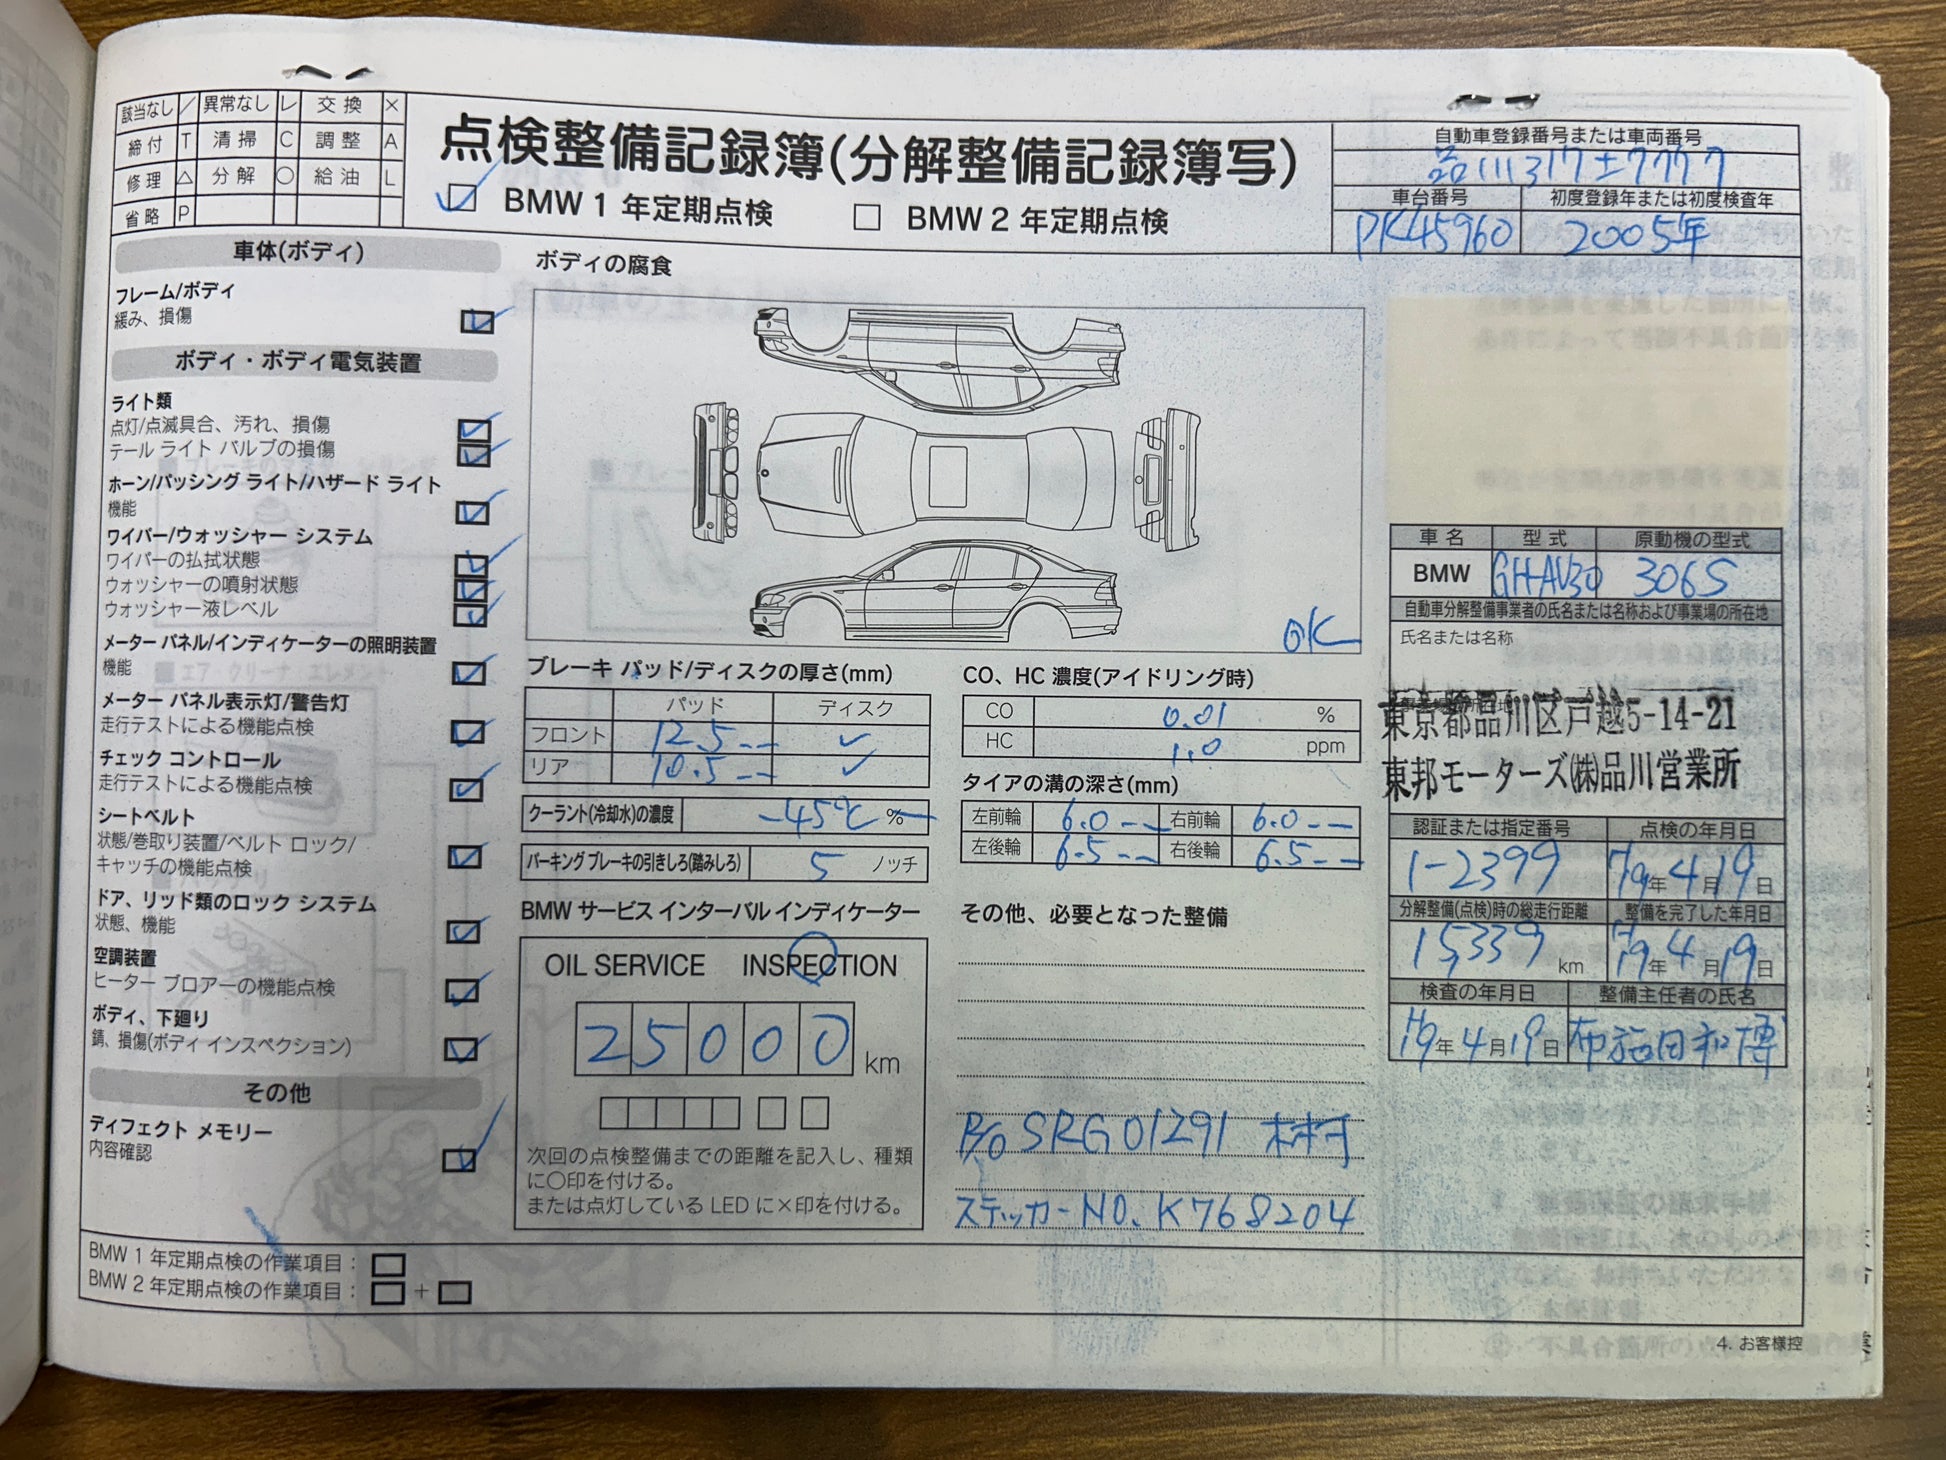 該当なし ／ 異常なし レ 交 換 ×
締 付 T 清 掃 C 調 整 A
修 理 △ 分 解 ○ 給 油 L
省 略 P
点検整備記録簿(分解整備記録簿写)
BMW 1 年定期点検 BMW 2 年定期点検
自動車登録番号または車両番号
品川317 7777
車台番号 初度登録年または初度検査年
PK45960 2005年
車体(ボディ)
フレーム/ボディ
緩み、損傷
ボディ・ボディ電気装置
ライト類
点灯/点滅具合、汚れ、損傷
テール ライト バルブの損傷
ホーン/パッシング ライト/ハザード ライト
機能
ワイパー/ウォッシャー システム
ワイパーの払拭状態
ウォッシャーの噴射状態
ウォッシャー液レベル
メーター パネル/インディケーターの照明装置
機能
メーター パネル表示灯/警告灯
走行テストによる機能点検
チェック コントロール
走行テストによる機能点検
シートベルト
状態/巻取り装置/ベルト ロック/
キャッチの機能点検
ドア、リッド類のロック システム
状態、機能
空調装置
ヒーター ブロアーの機能点検
ボディ、下廻り
錆、損傷(ボディ インスペクション)
その他
ディフェクト メモリー
内容確認
ボディの腐食
OK
ブレーキ パッド/ディスクの厚さ(mm)
パッド ディスク
フロント 12.5
リア 10.5
クーラント(冷却水)の濃度 -45℃ %
パーキング ブレーキの引きしろ(踏みしろ) 5 ノッチ
BMW サービス インターバル インディケーター
OIL SERVICE INSPECTION
25000 km
次回の点検整備までの距離を記入し、種類
に○印を付ける。
または点灯している LED に×印を付ける。
CO、HC 濃度(アイドリング時)
CO 0.01 %
HC 1.0 ppm
タイアの溝の深さ(mm)
左前輪 6.0 右前輪 6.0
左後輪 6.5 右後輪 6.5
その他、必要となった整備
P/O SRG01291
ステッカーNO. K768204
車 名 型 式 原動機の型式
BMW GH-AV30 306S
自動車分解整備事業者の氏名または名称および事業場の所在地
氏名または名称
東京都品川区戸越5-14-21
東邦モーターズ㈱品川営業所
認証または指定番号 点検の年月日
1-2399 19年 4月 19日
分解整備(点検)時の総走行距離 整備を完了した年月日
15,339 km 19年 4月 19日
検査の年月日 整備主任者の氏名
19年 4月 19日 布施田和博
BMW 1 年定期点検の作業項目：
BMW 2 年定期点検の作業項目： +
4. お客様控